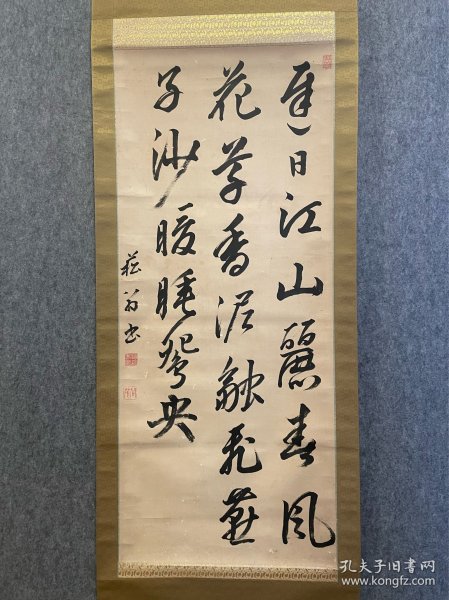 遲日江山麗春風
花草香泥融飛燕
子沙暖睡鴛央
菘翁書
孔夫子旧书网
www.kongfz.com